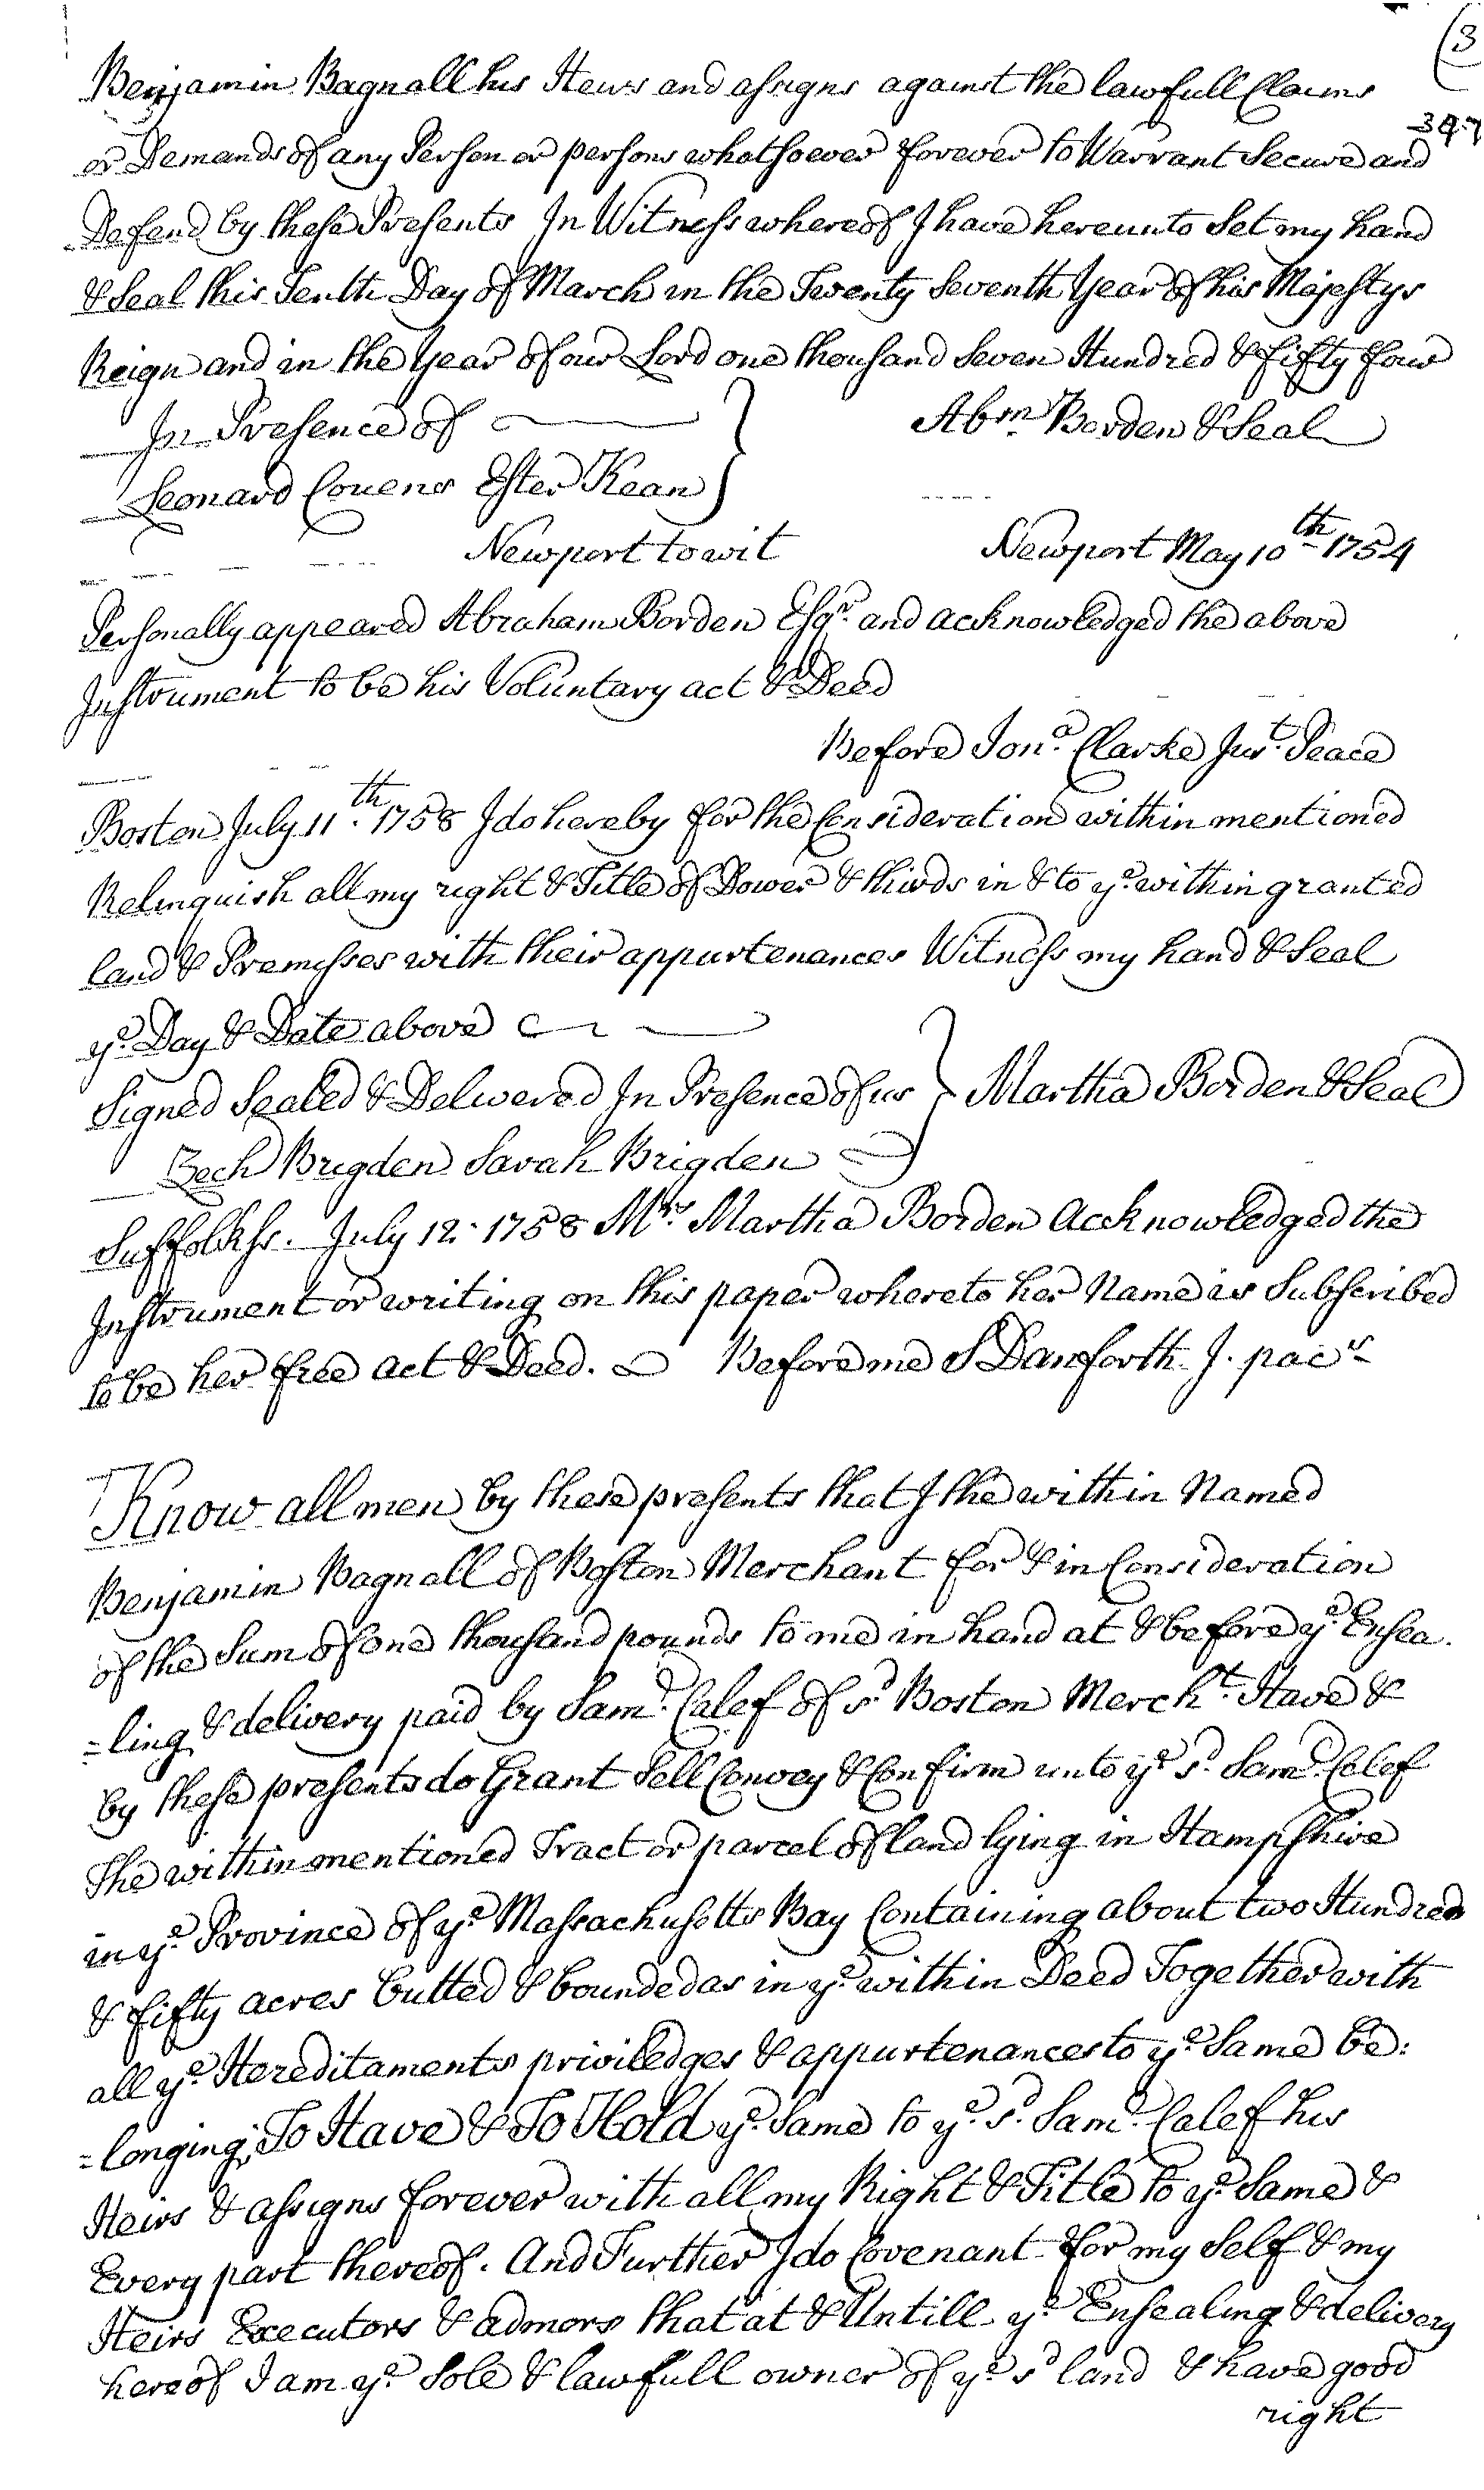 (3
34.7
Benjamin Bagnall his Heirs and assigns against the lawfull Claims
or Demands of any Person or persons whatsoever forever to Warrant Secure and
Defend by these Presents In Witness whereof I have hereunto Set my hand
& Seal this Tenth Day of March in the Twenty Seventh Year of his Majestys
Reign and in the Year of our Lord one thousand Seven Hundred & fifty four
In Presence of } Abrm. Borden & Seal
Leonard Couens Ester Kean
Newport to wit Newport May 10th 1754
Personally appeared Abraham Borden Esqr. and acknowledged the above
Instrument to be his Voluntary act & Deed
Before Jona. Clarke Just. Peace
Boston July 11th. 1758 I do hereby for the Consideration within mentioned
Relinquish all my right & Title of Dower & thirds in & to ye. within granted
land & Premisses with their appurtenances Witness my hand & Seal
ye. Day & Date above
Signed Sealed & Delivered In Presence of us } Martha Borden & Seal
Zech Brigden Sarah Brigden
Suffolk ss. July 12. 1758 Mrs. Martha Borden Acknowledged the
Instrument or writing on this paper whereto her Name is Subscribed
to be her free act & Deed. Before me S Danforth J. pacs
Know all men by these presents that I the within Named
Benjamin Bagnall of Boston Merchant for & in Consideration
of the Sum of one thousand pounds to me in hand at & before ye. Ensea.
=ling & delivery paid by Samd. Calef of sd. Boston Mercht. Have &
by these presents do Grant Sell Convey & Confirm unto ye. sd. Samd. Calef
The within mentioned Tract or parcel of land lying in Hampshire
in ye. Province of ye. Massachusetts Bay Containing about two Hundred
& fifty acres butted & bounded as in ye. within Deed Together with
all ye. Hereditaments priviledges & appurtenances to ye. Same be:
=longing; To Have & To Hold ye. Same to ye. sd. Samd. Calef his
Heirs & assigns forever with all my Right & Title to ye. Same &
Every part thereof. And Further I do Covenant for my Self & my
Heirs Executors & admors that at & Untill ye. Ensealing & delivery
hereof I am ye. Sole & lawfull owner of ye. sd land & have good
right